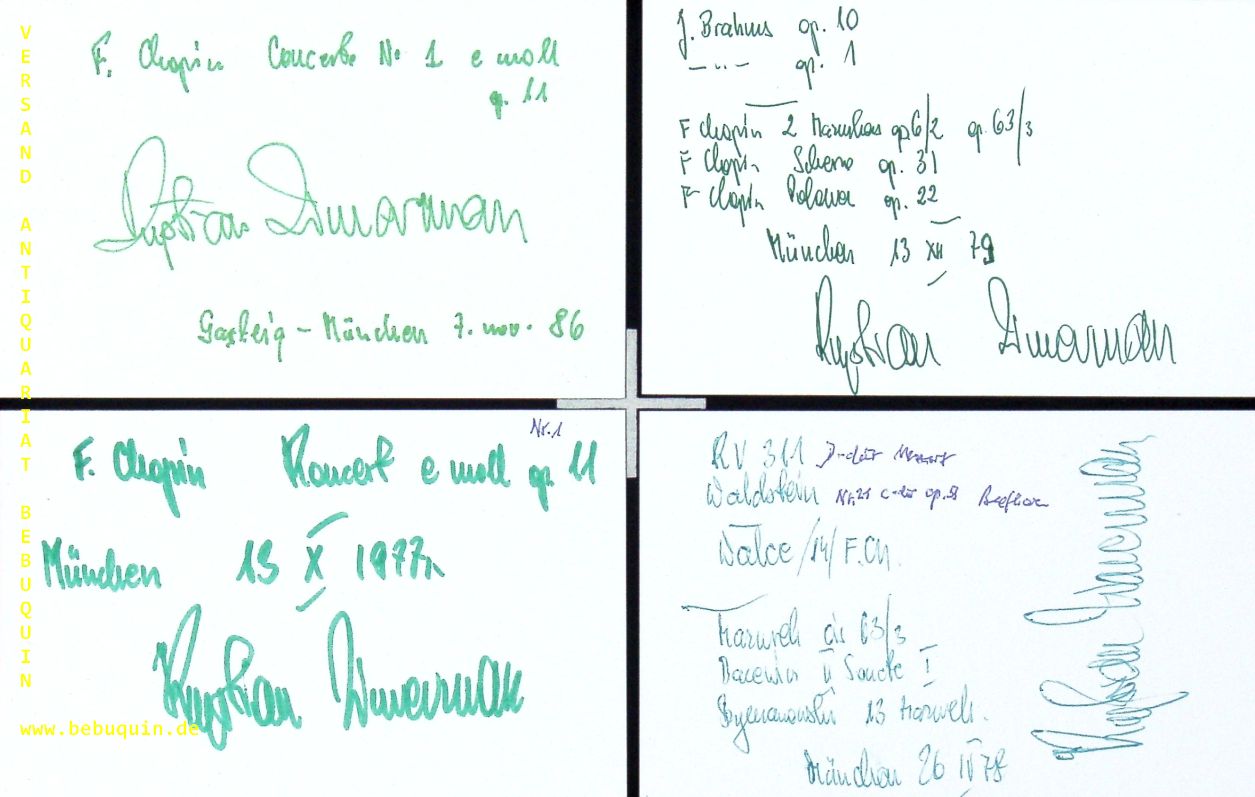 VERSAND ANTIQUARIAT BEBUQUIN
www.bebuquin.de
F. Chopin Concerto Nr 1 e moll
op. 11
Krystian Zimerman
Gasteig - München 7. nov. 86
J. Brahms op. 10
— " — op. 1
F Chopin 2 Mazurkas op 6/2 op. 63/3
F Chopin Scherzo op. 31
F Chopin Polonez op. 22
München 13 XII 79
Krystian Zimerman
Nr. 1
F. Chopin Koncert e moll op 11
München 13 X 1977r
Krystian Zimerman
KV 311 D-dur Mozart
Waldstein Nr. 21 C-dur op. 53 Beethoven
Walce /14/ F. Ch.
Mazurek cis 63/3
Bacewicz II Sonate I
Szymanowski 13 Mazurek.
München 26 IV 78
Krystian Zimerman